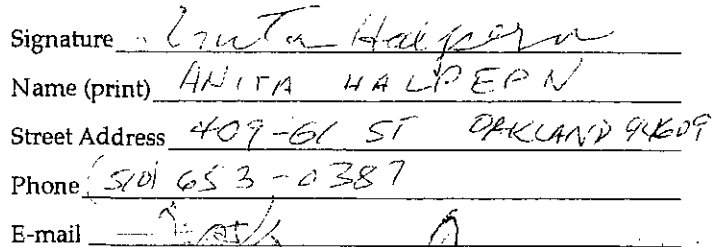 Signature Anita Halpern
Name (print) ANITA HALPERN
Street Address 409-61 ST OAKLAND 94609
Phone (510) 653-0387
E-mail